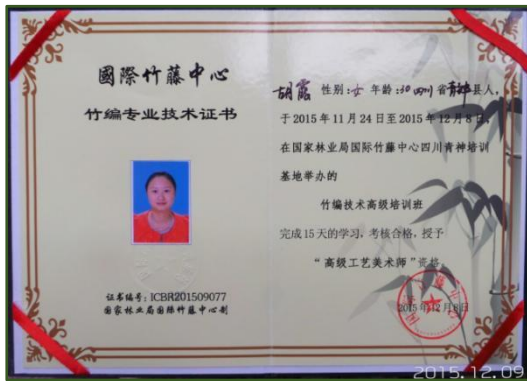 國際竹藤中心
竹编专业技术证书
证书编号：ICBR201509077
国家林业局国際竹藤中心制
胡霞 性别：女 年龄：30 四川省青神县人，
于2015年11月24日至2015年12月8日，
在国家林业局国际竹藤中心四川青神培训
基地举办的
竹编技术高级培训班
完成15天的学习，考核合格，授予
“高级工艺美术师”资格。
2015年12月8日
2015.12.09